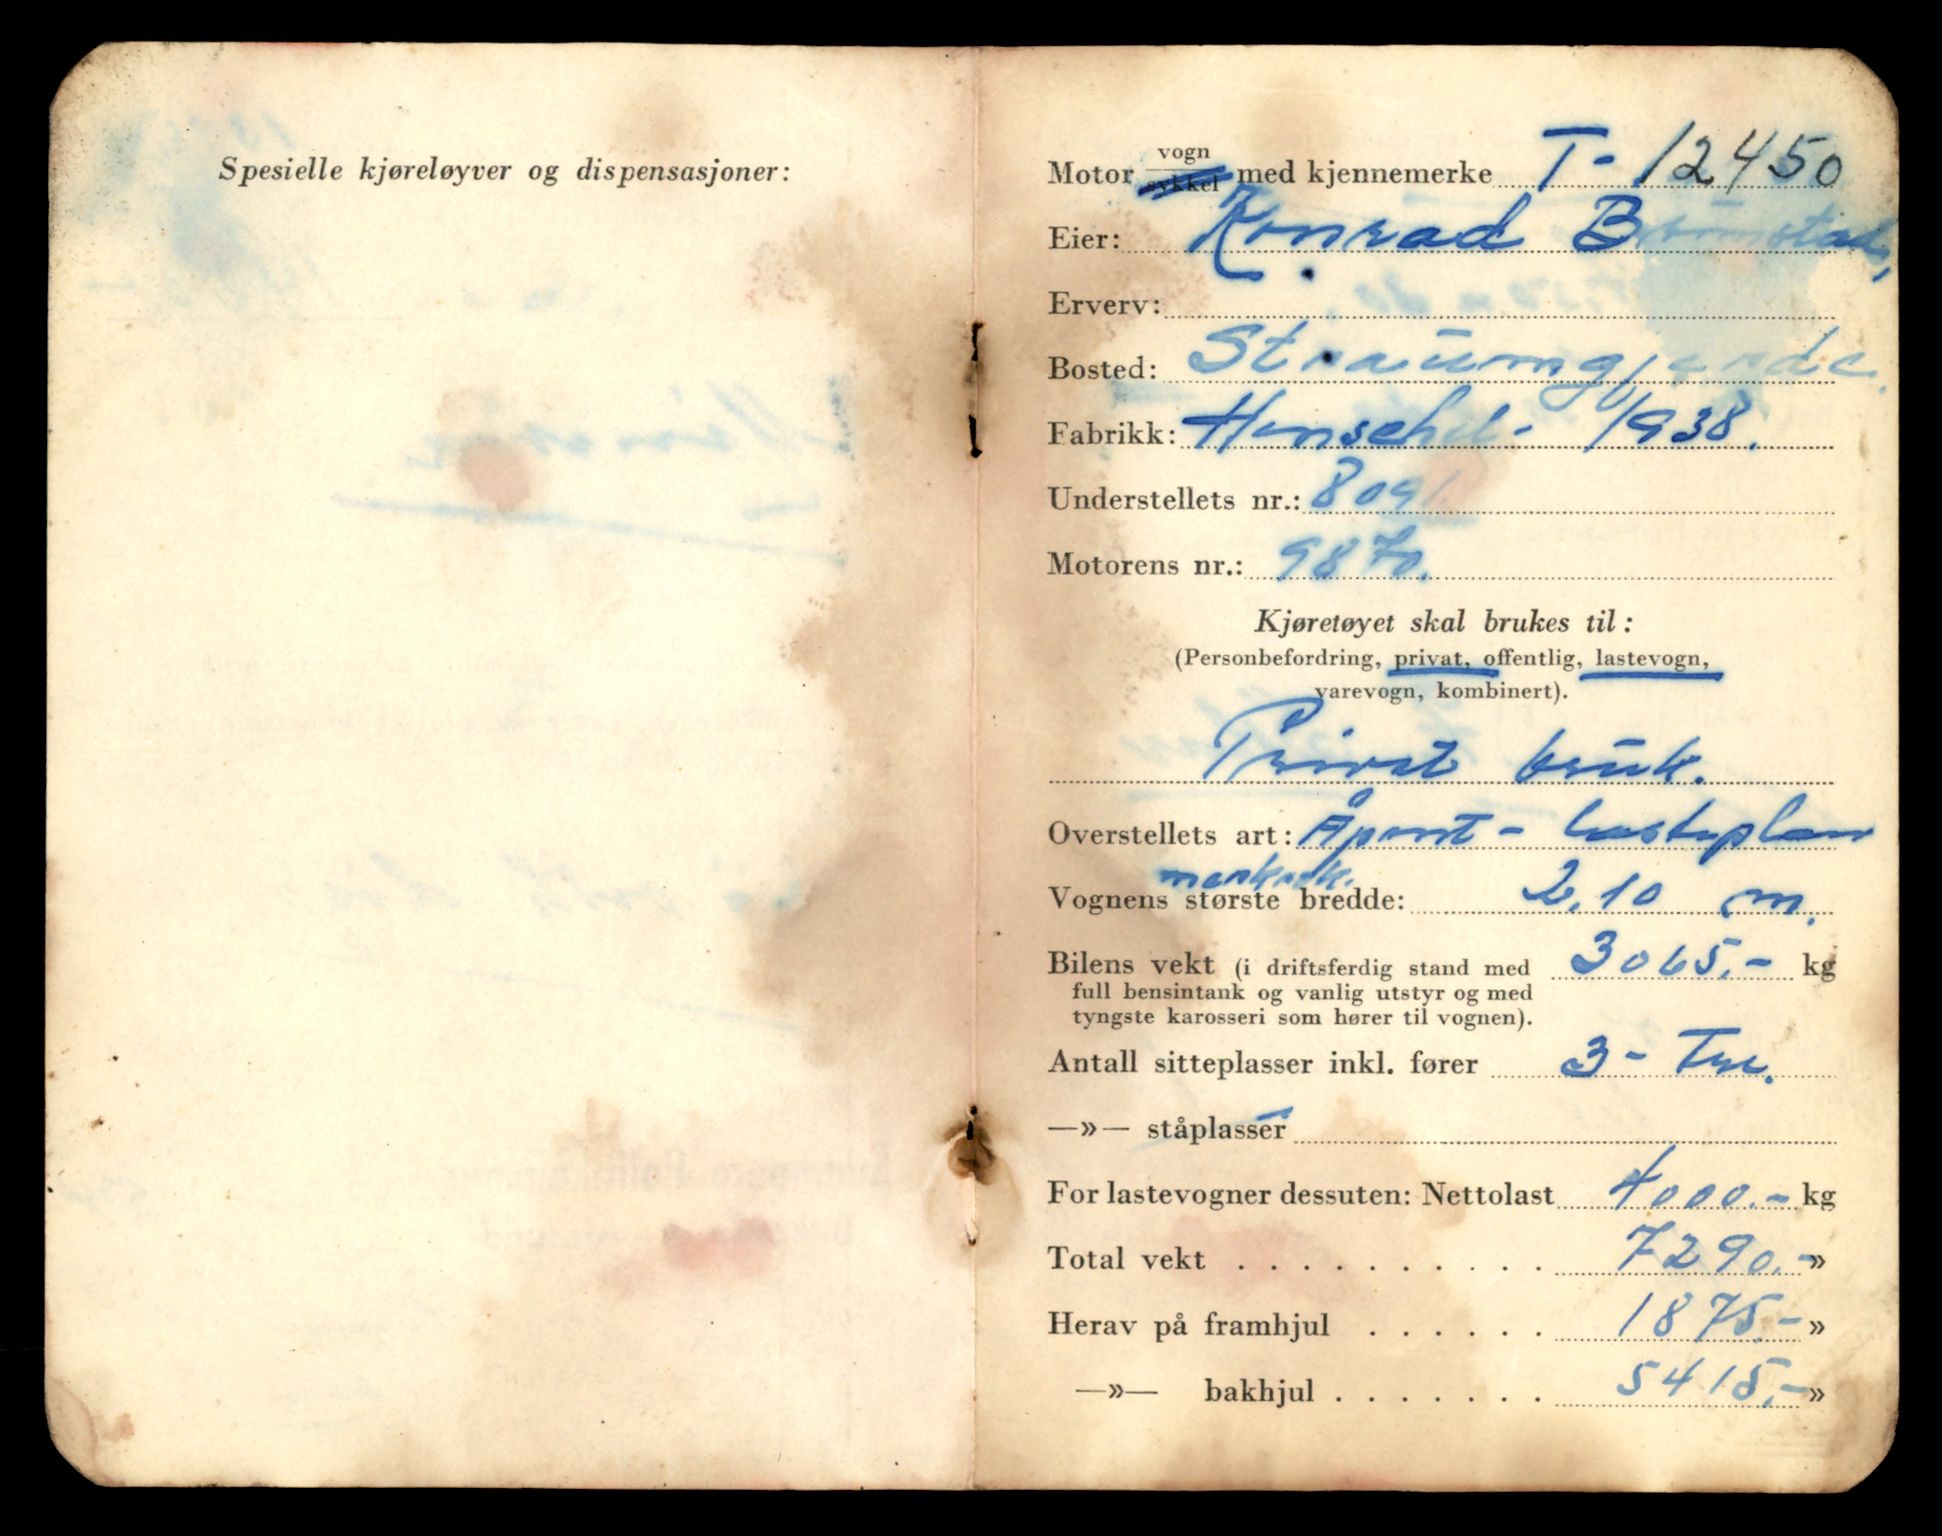 Spesielle kjøreløyver og dispensasjoner:
Motor vogn sykkel med kjennemerke T- 12450
Eier: Konrad
Erverv:
Bosted: Straumgjerde.
Fabrikk: Henschel- 1938.
Understellets nr.: 8091
Motorens nr.: 9870.
Kjøretøyet skal brukes til:
(Personbefordring, privat, offentlig, lastevogn,
varevogn, kombinert).
Privat bruk.
Overstellets art: Åpent - lasteplan
Vognens største bredde: 2,10 m.
Bilens vekt (i driftsferdig stand med 3065.- kg
full bensintank og vanlig utstyr og med
tyngste karosseri som hører til vognen).
Antall sitteplasser inkl. fører 3- Tre.
—»— ståplasser
For lastevogner dessuten: Nettolast 4000.- kg
Total vekt . . . . . . . . . . 7290.- »
Herav på framhjul . . . . . . 1875.- »
—»— bakhjul . . . . . . . 5415.- »